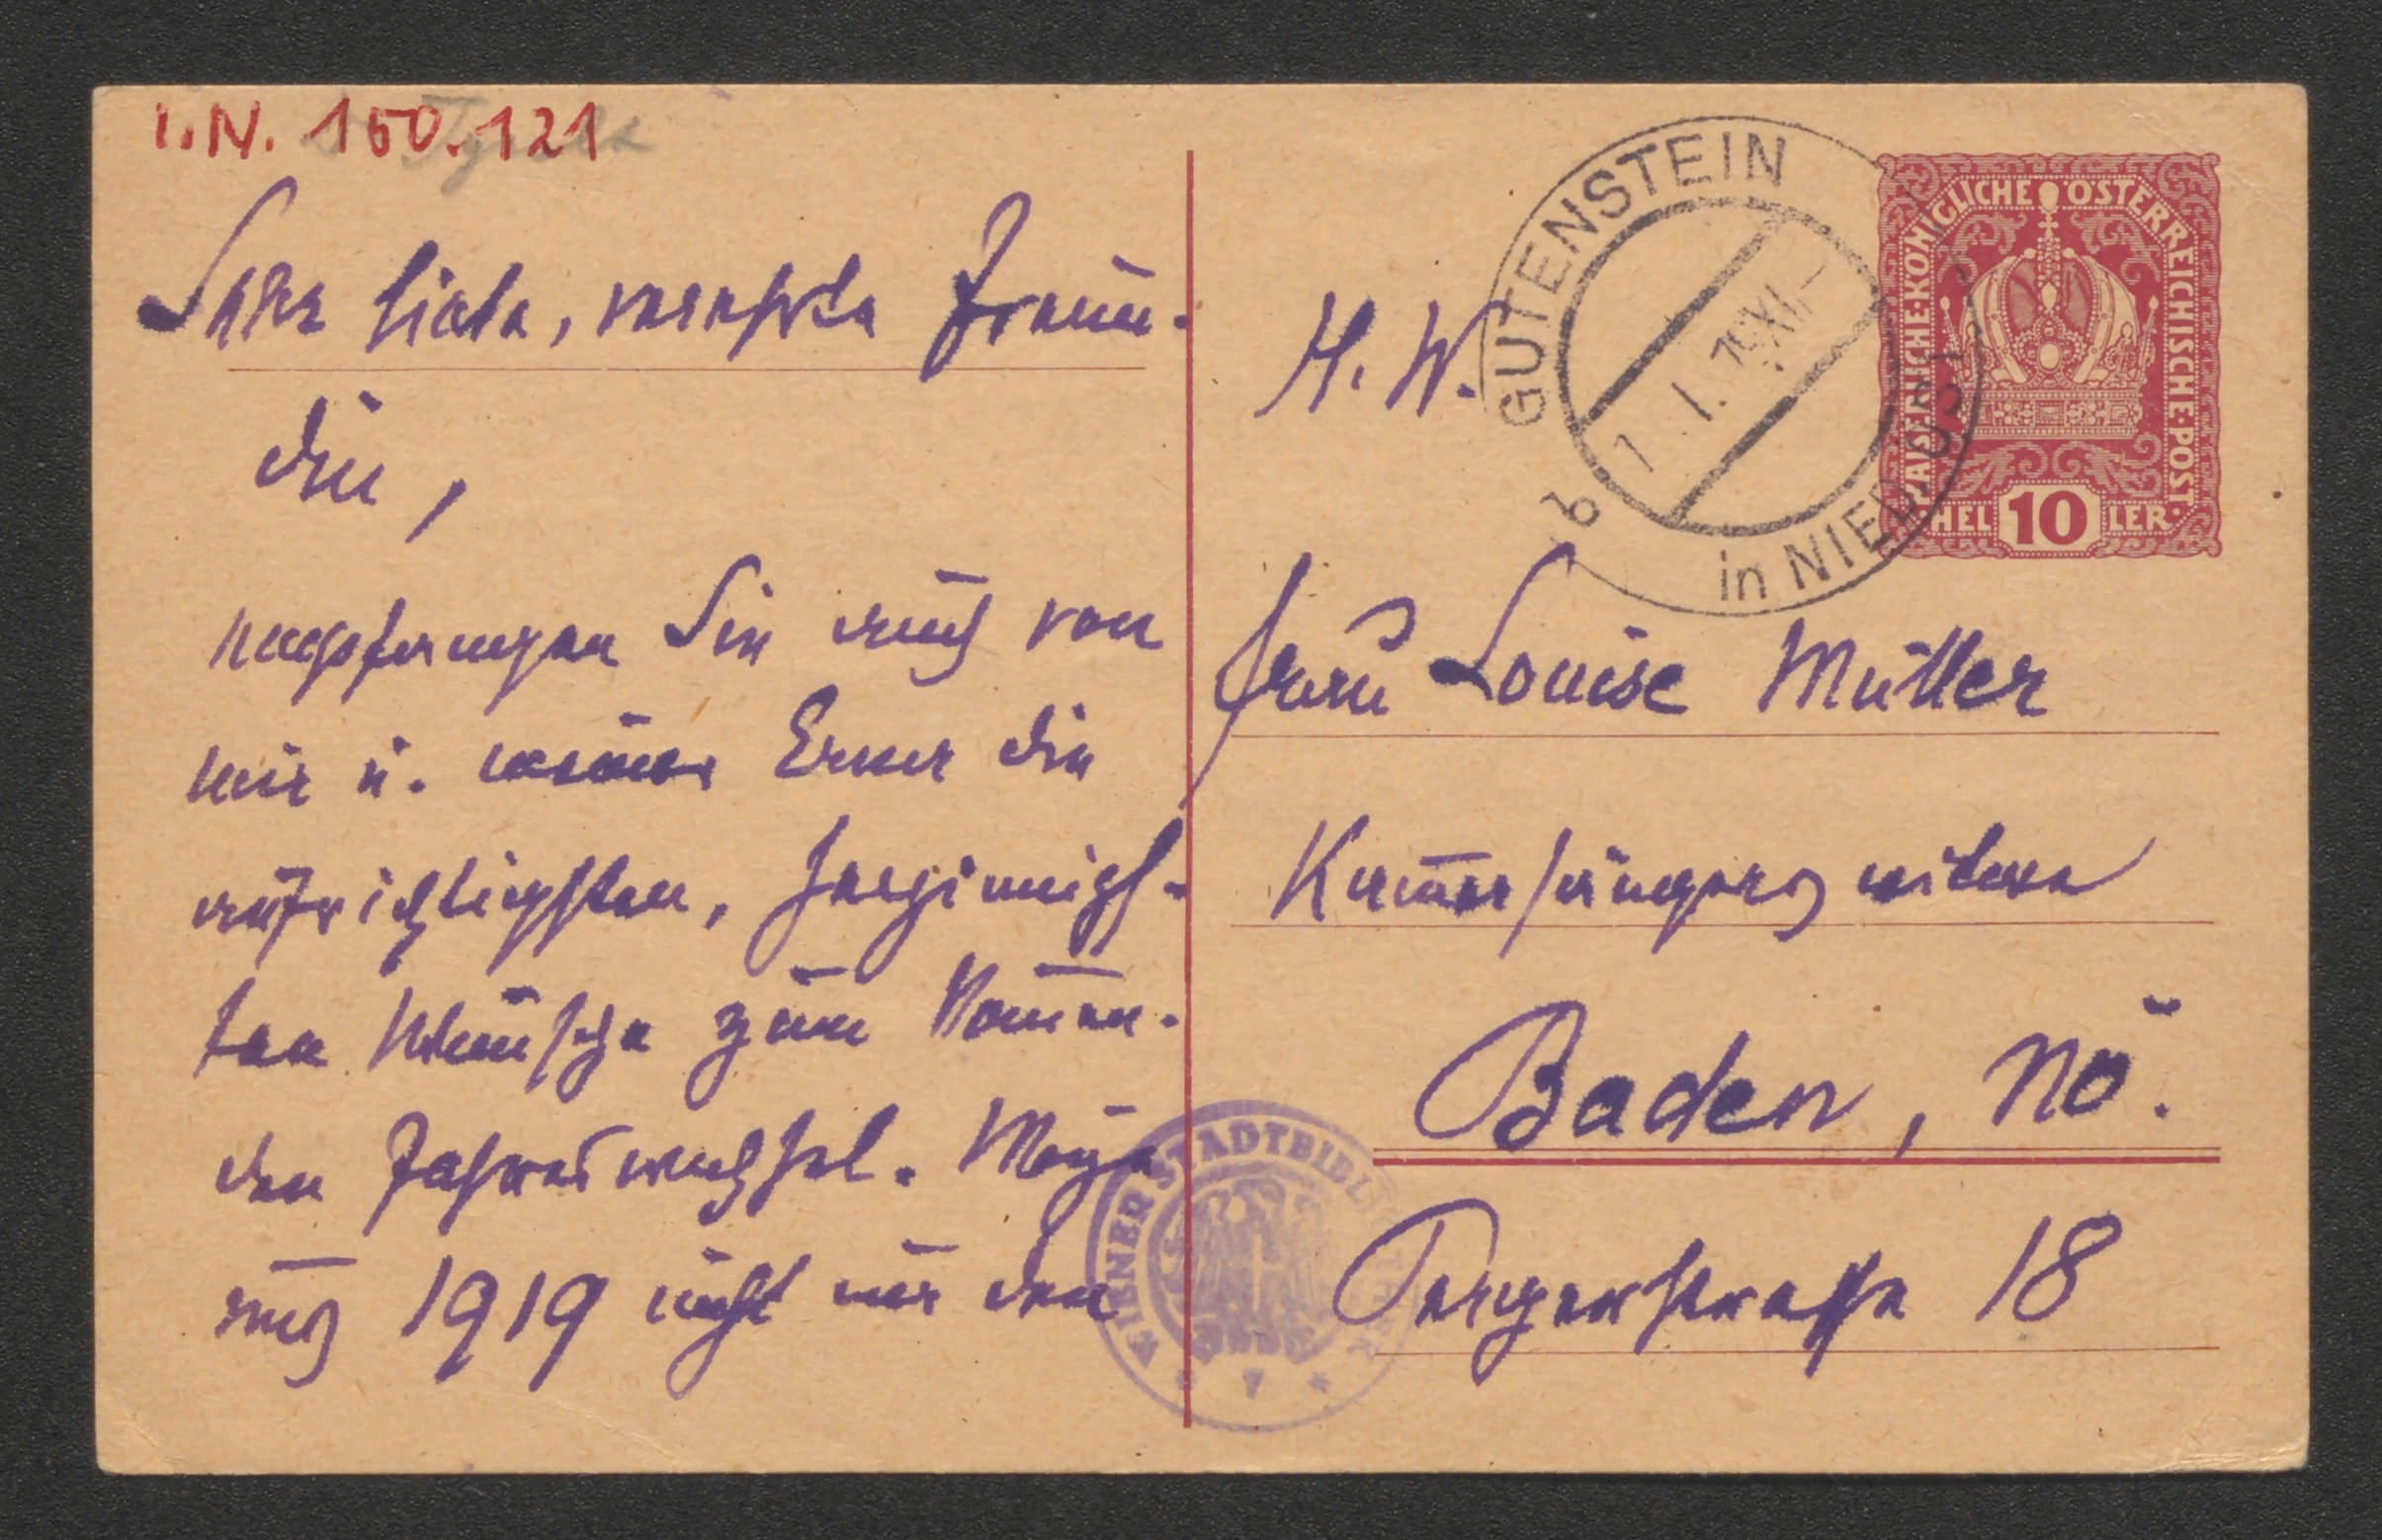 I.N. 150.121
Sehr liebe, verehrte Freun-
din,
empfangen Sie auch von
mir u. meiner Erna die
aufrichtigsten, herzinnigs-
ten Wünsche zum kom̄en-
den Jahreswechsel. Möge
uns 1919 nicht nur den
GUTENSTEIN
in NIED. ÖST
b
1. I. 19 XI.-
KAISERLICHE·KÖNIGLICHE ÖSTERREICHISCHE·POST·
HEL 10 LER
H. W.
Frau Louise Müller
Kam̄ersängerswitwe
Baden, NÖ.
Pergerstrasse 18
WIENER STADTBIBLIOTHEK
* 7 *